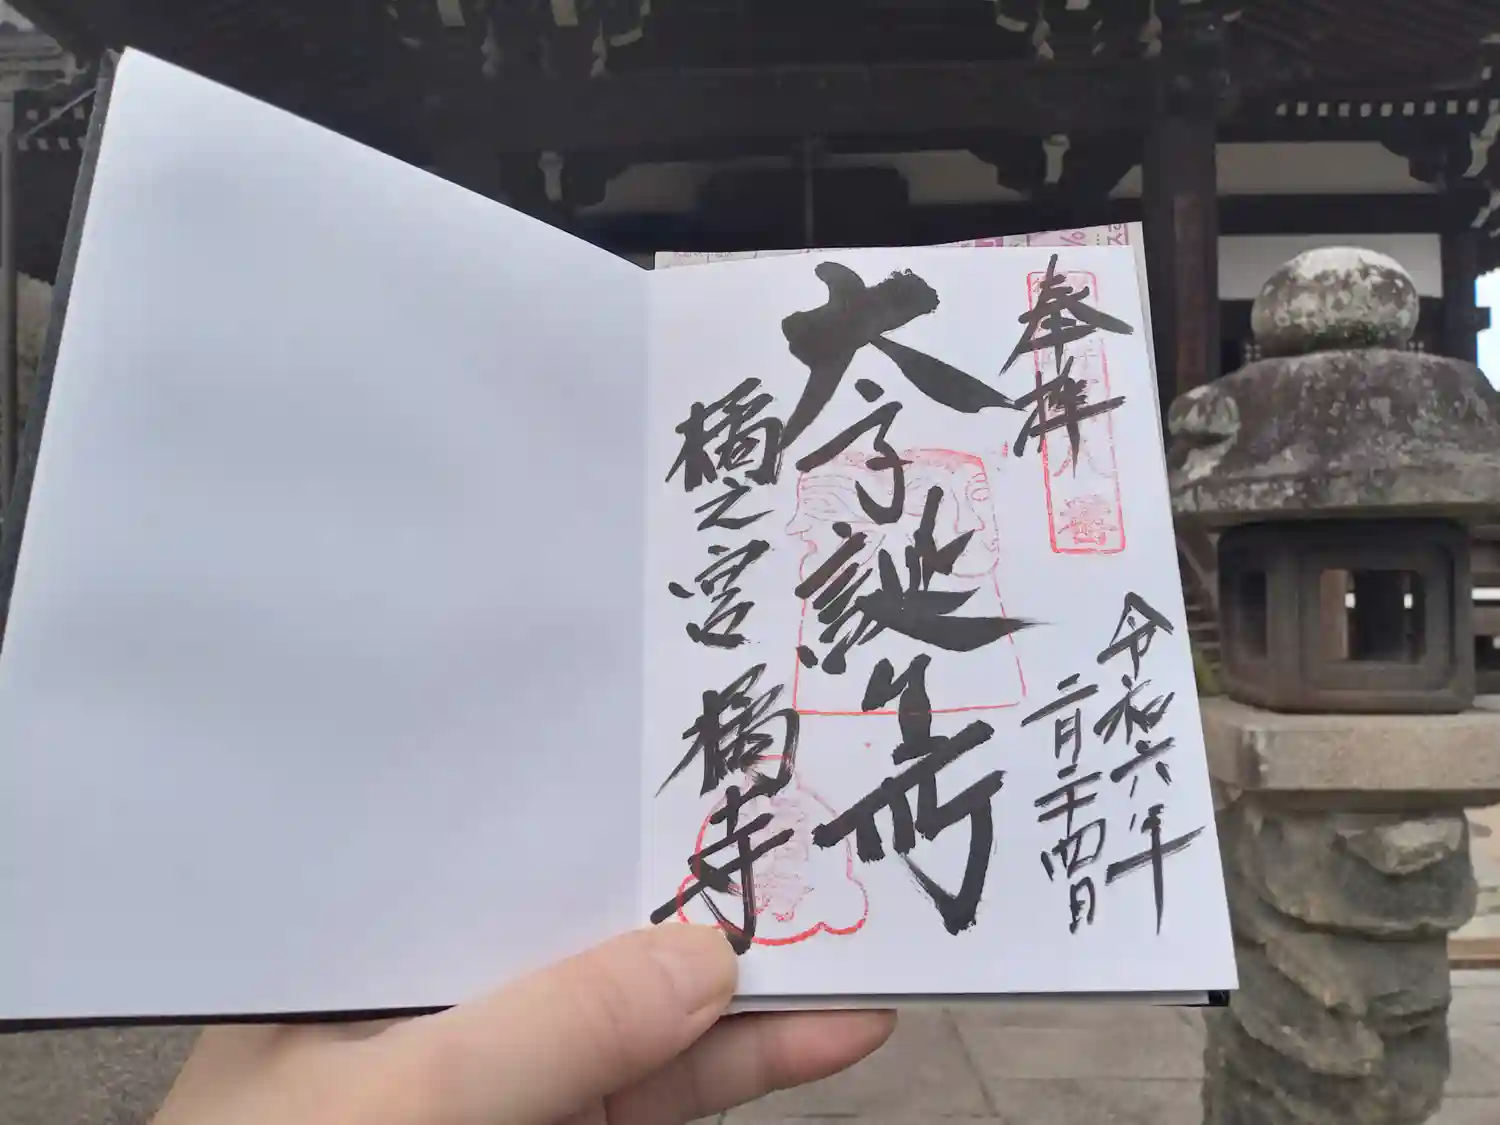 奉拝
令和六年
二月二十四日
太子誕生所
橘之宮 橘寺